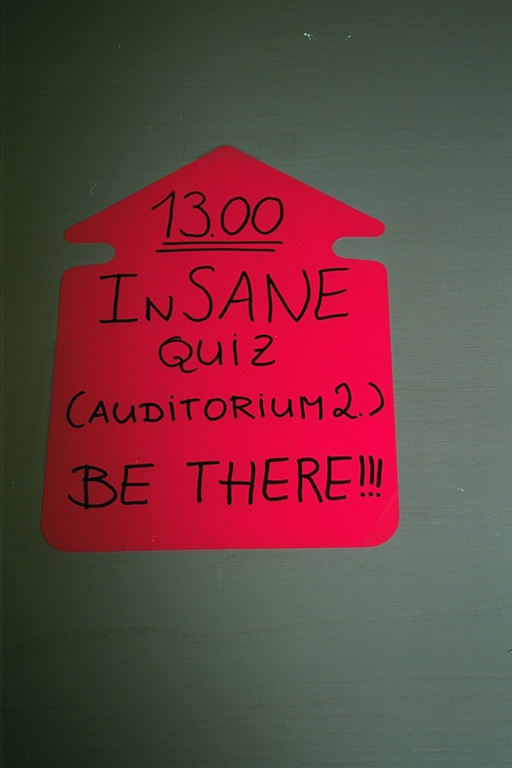 13.00
InSANE
QUiZ
(AUDiTORiUM 2.)
BE THERE!!!